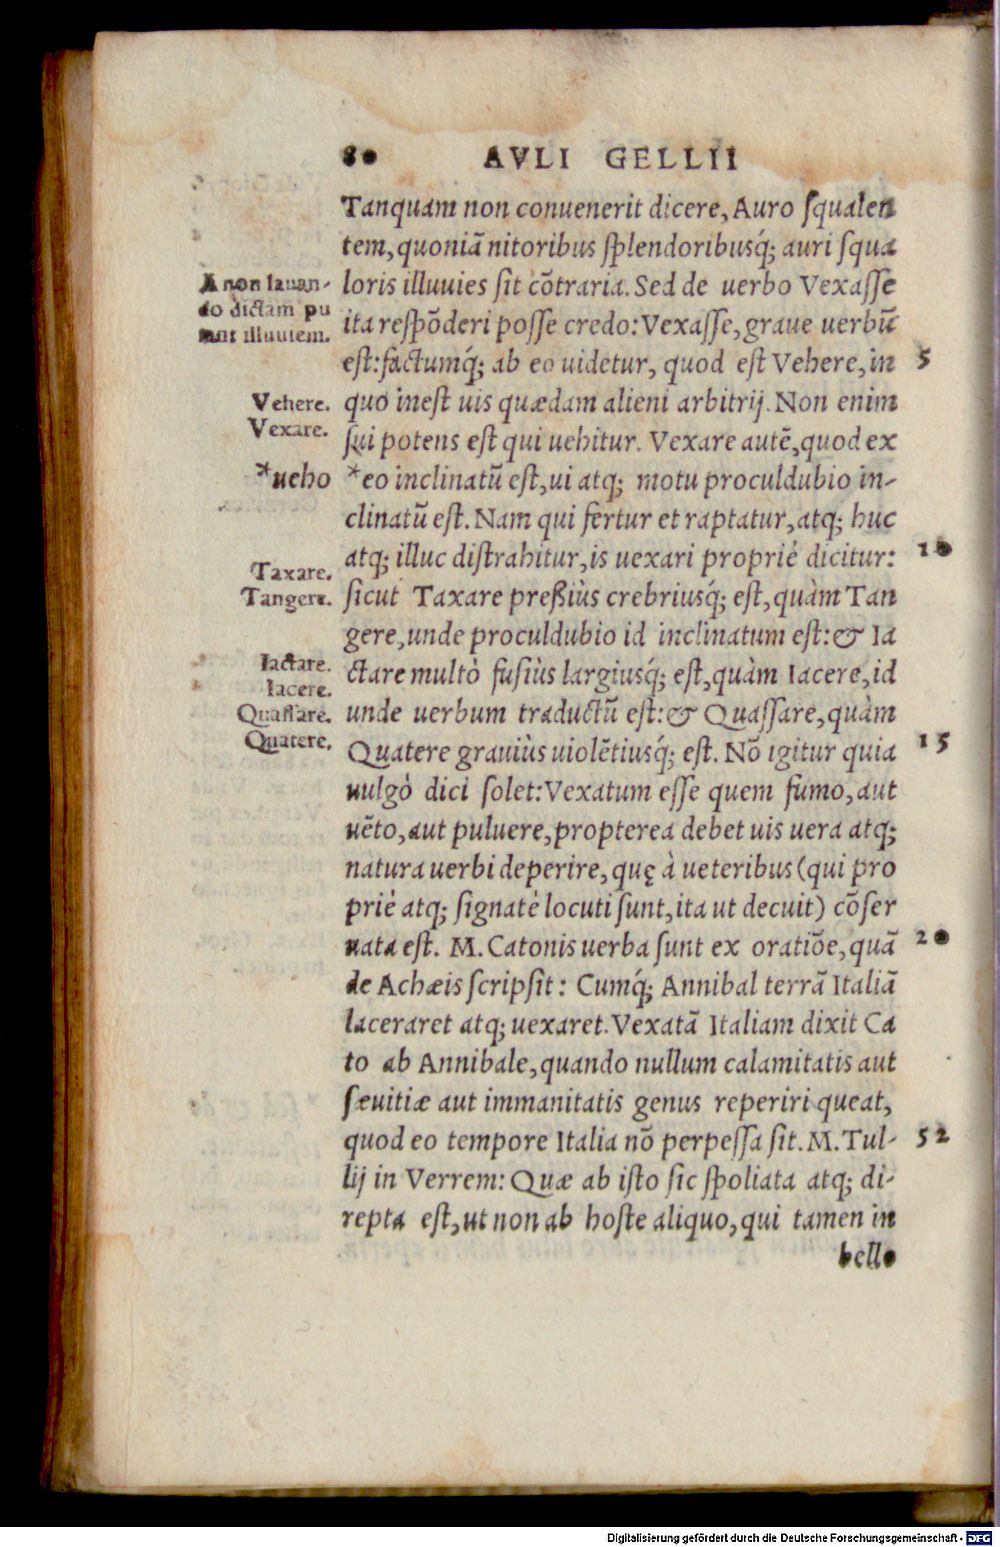 80 AVLI GELLII
Tanquam non conuenerit dicere, Auro ſqualen
tem, quoniā nitoribus ſplendoribusq́; auri ſqua
loris illuuies ſit cōtraria. Sed de uerbo Vexaſſe
ita reſpōderi poſſe credo: Vexaſſe, graue uerbū
eſt: factumq́; ab eo uidetur, quod eſt Vehere, in
quo ineſt uis quædam alieni arbitrij. Non enim
ſui potens eſt qui uehitur. Vexare autē, quod ex
*eo inclinatū eſt, ui atq; motu proculdubio in-
clinatū eſt. Nam qui fertur et raptatur, atq; huc
atq; illuc diſtrahitur, is uexari propriè dicitur:
ſicut Taxare preßiùs crebriusq́; eſt, quàm Tan
gere, unde proculdubio id inclinatum eſt: & Ia
ctare multò fuſiùs largiusq́; eſt, quàm Iacere, id
unde uerbum traductū eſt: & Quaſſare, quàm
Quatere grauiùs uiolētiusq́; eſt. Nō igitur quia
uulgò dici ſolet: Vexatum eſſe quem fumo, aut
uēto, aut puluere, propterea debet uis uera atq;
natura uerbi deperire, quę à ueteribus (qui pro
priè atq; ſignatè locuti ſunt, ita ut decuit) cōſer
uata eſt. M. Catonis uerba ſunt ex oratiōe, quā
de Achæis ſcripſit: Cumq́; Annibal terrā Italiā
laceraret atq; uexaret. Vexatā Italiam dixit Ca
to ab Annibale, quando nullum calamitatis aut
ſæuitiæ aut immanitatis genus reperiri queat,
quod eo tempore Italia nō perpeſſa ſit. M. Tul-
lij in Verrem: Quæ ab iſto ſic ſpoliata atq; di-
repta eſt, ut non ab hoſte aliquo, qui tamen in
bello
A non lauan-
do dictam pu
tant illuuiem.
Vehere.
Vexare.
*ueho
Taxare.
Tangere.
Iactare.
Iacere.
Quaſſare.
Quatere.
5
10
15
20
52
Digitalisierung gefördert durch die Deutsche Forschungsgemeinschaft - DFG